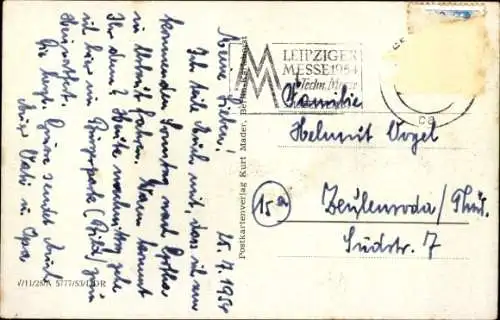 25. 7. 1954
Meine Lieben!
Ich teile Euch mit, dass ich am
kommenden Sonntag nach
in Urlaub fahre. Wann kommt
Ihr denn? Heute nachmittag gehe
ich hier im (Bild) zum
Die herzl. Grüße sendet Euch
Euer Vati u. Opa
Postkartenverlag Kurt Mader, Berlin-Karlshorst
V/11/28/A 5777/53/DDR
LEIPZIGER
MESSE 1954
Techn. Messe
Familie
Helmut Vogel
15a
Zeulenroda / Thür.
Südstr. 7